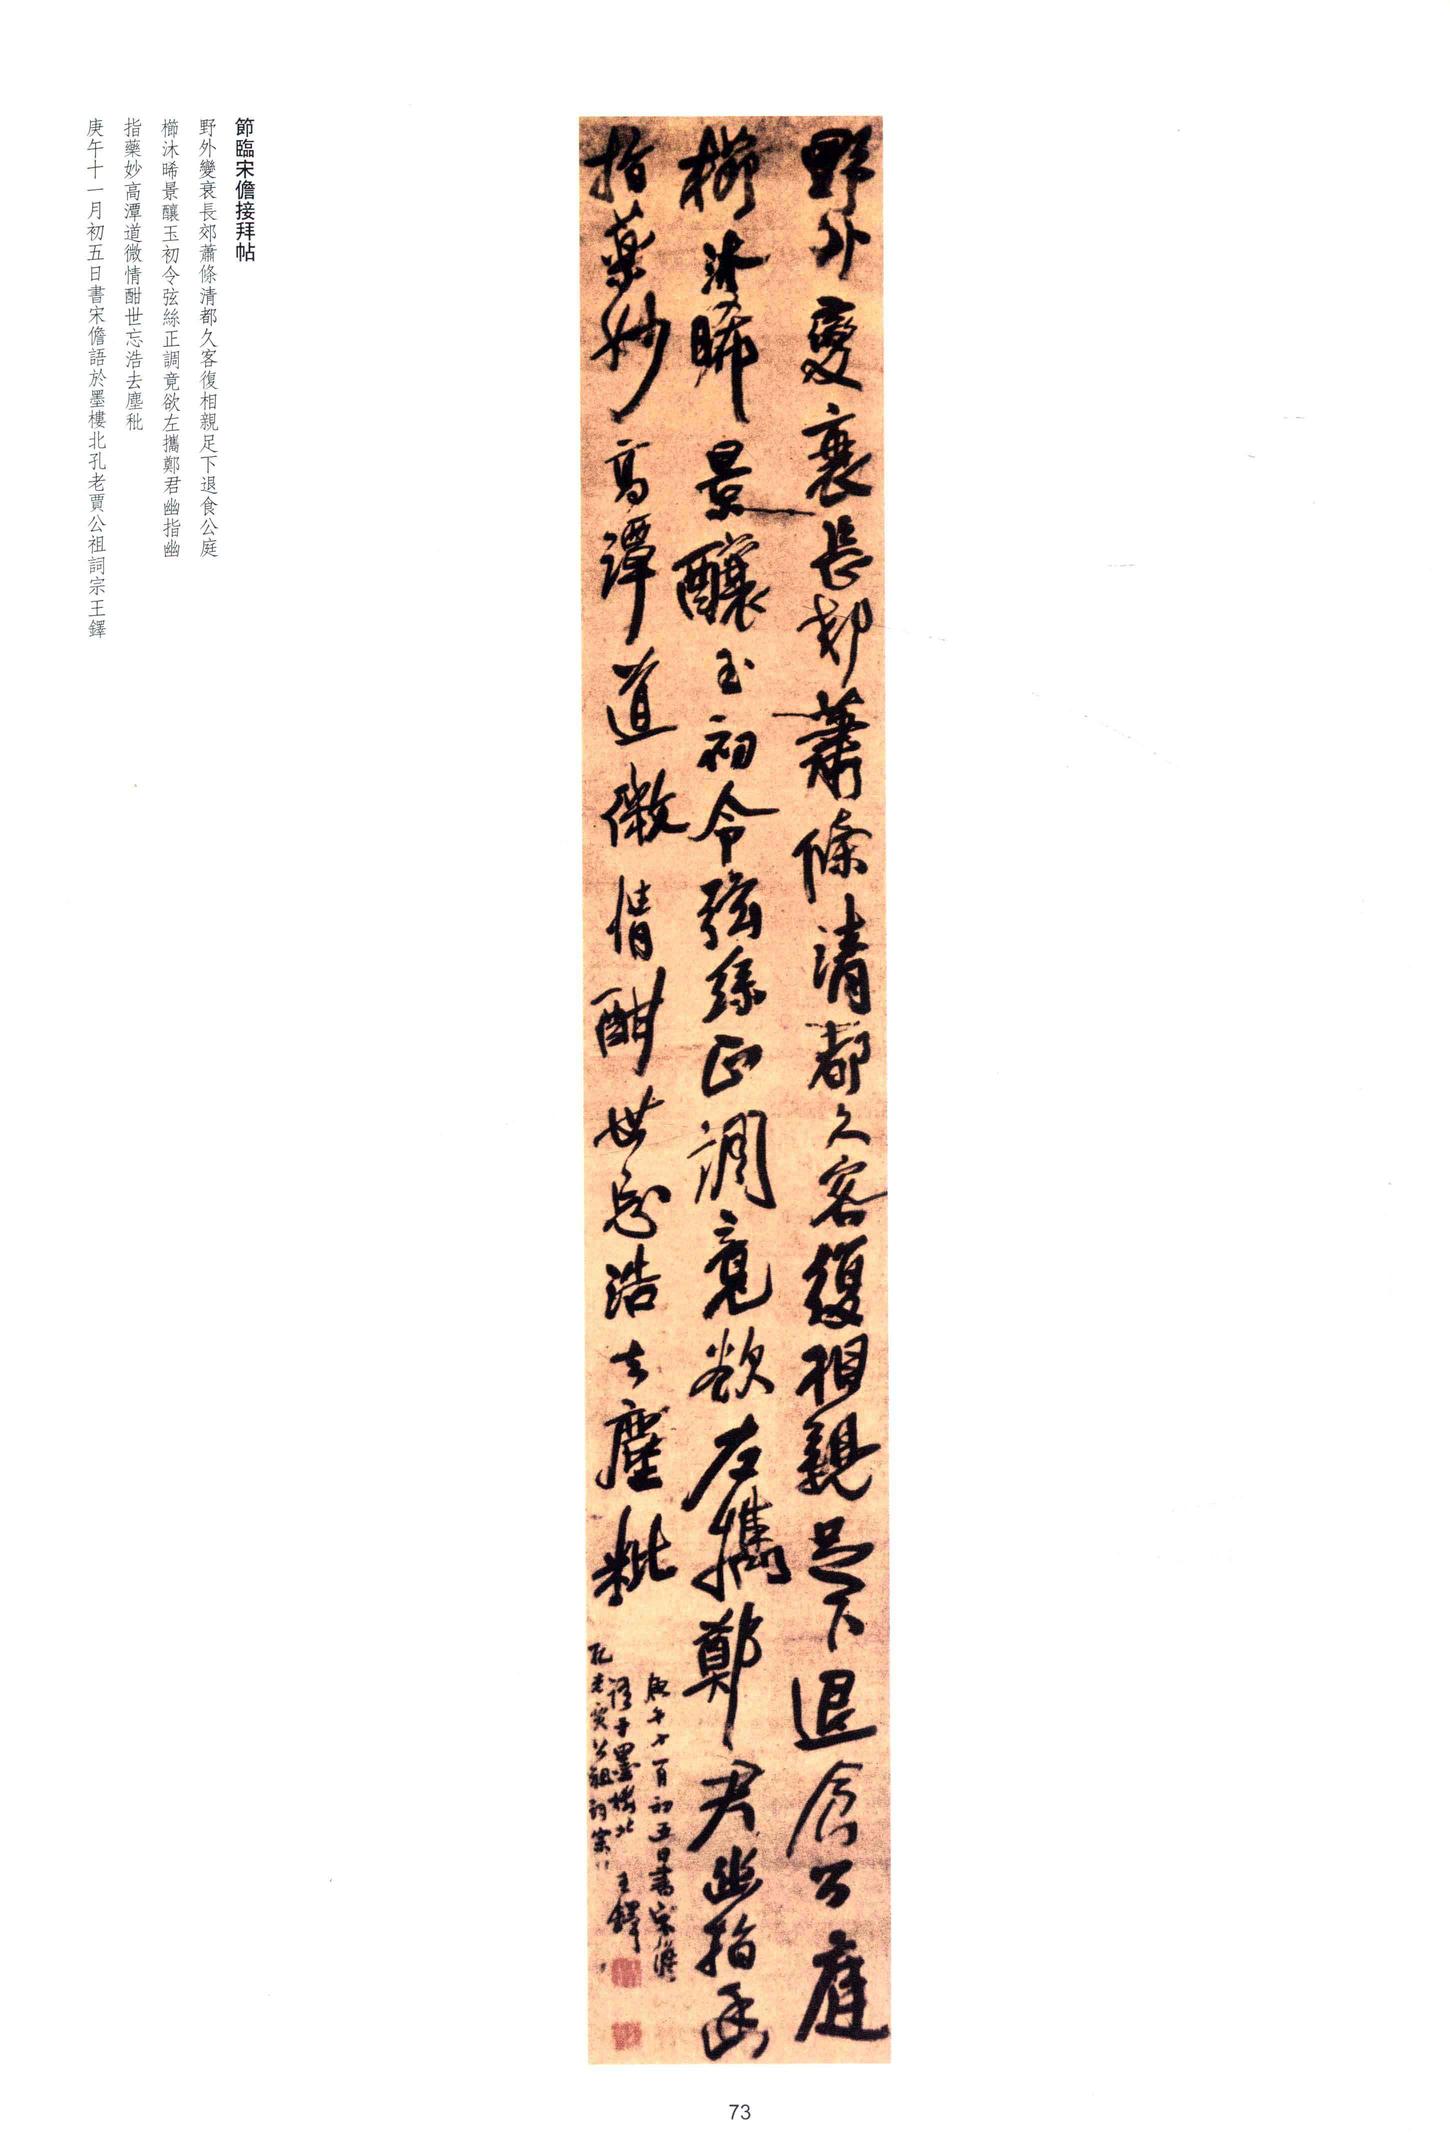 野外變衰長郊蕭條清都久客復相親足下退食公庭
櫛沐晞景釀玉初令弦絲正調竟欲左攜鄭君幽指幽
指藥妙高潭道微情酣世忘浩去塵秕
庚午十一月初五日書宋儋
語于墨樓北
孔老賈公祖詞宗
王鐸
節臨宋儋接拜帖
野外變衰長郊蕭條清都久客復相親足下退食公庭
櫛沐晞景釀玉初令弦絲正調竟欲左攜鄭君幽指幽
指藥妙高潭道微情酣世忘浩去塵秕
庚午十一月初五日書宋儋語於墨樓北孔老賈公祖詞宗王鐸
73